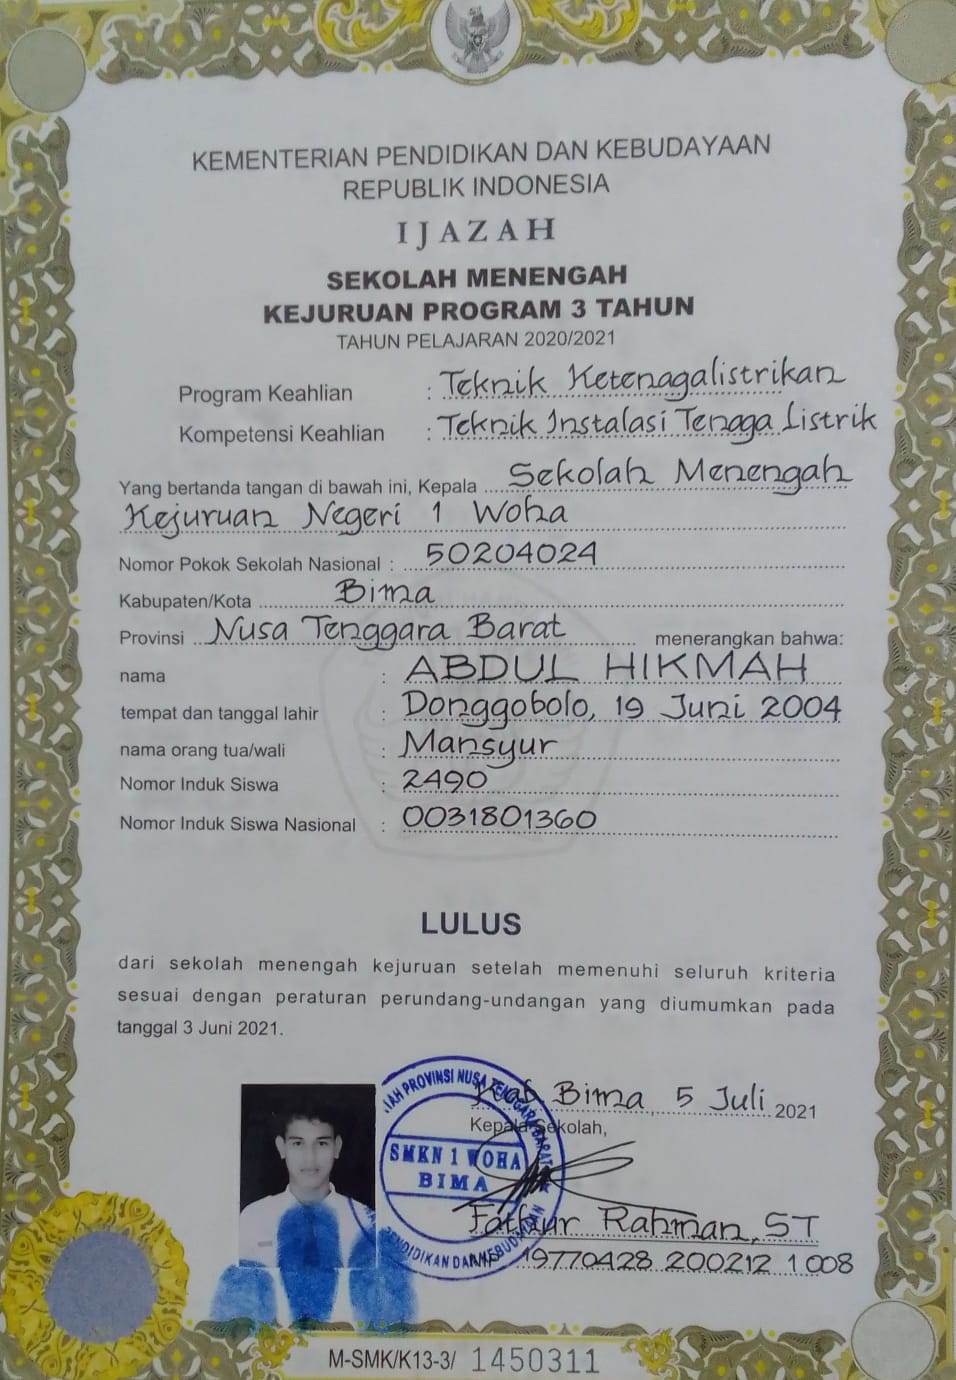 KEMENTERIAN PENDIDIKAN DAN KEBUDAYAAN
REPUBLIK INDONESIA
IJAZAH
SEKOLAH MENENGAH
KEJURUAN PROGRAM 3 TAHUN
TAHUN PELAJARAN 2020/2021
Program Keahlian : Teknik Ketenagalistrikan
Kompetensi Keahlian : Teknik Instalasi Tenaga Listrik
Yang bertanda tangan di bawah ini, Kepala Sekolah Menengah
Kejuruan Negeri 1 Woha
Nomor Pokok Sekolah Nasional : 50204024
Kabupaten/Kota Bima
Provinsi Nusa Tenggara Barat menerangkan bahwa:
nama : ABDUL HIKMAH
tempat dan tanggal lahir : Donggobolo, 19 Juni 2004
nama orang tua/wali : Mansyur
Nomor Induk Siswa : 2490
Nomor Induk Siswa Nasional : 0031801360
LULUS
dari sekolah menengah kejuruan setelah memenuhi seluruh kriteria
sesuai dengan peraturan perundang-undangan yang diumumkan pada
tanggal 3 Juni 2021.
Kab Bima, 5 Juli 2021
Kepala Sekolah,
PROVINSI NUSA TENGGARA BARAT
SMKN 1 WOHA
BIMA
PENDIDIKAN DAN KEBUDAYAAN
Fathur Rahman, ST
19770428 200212 1 008
M-SMK/K13-3/ 1450311